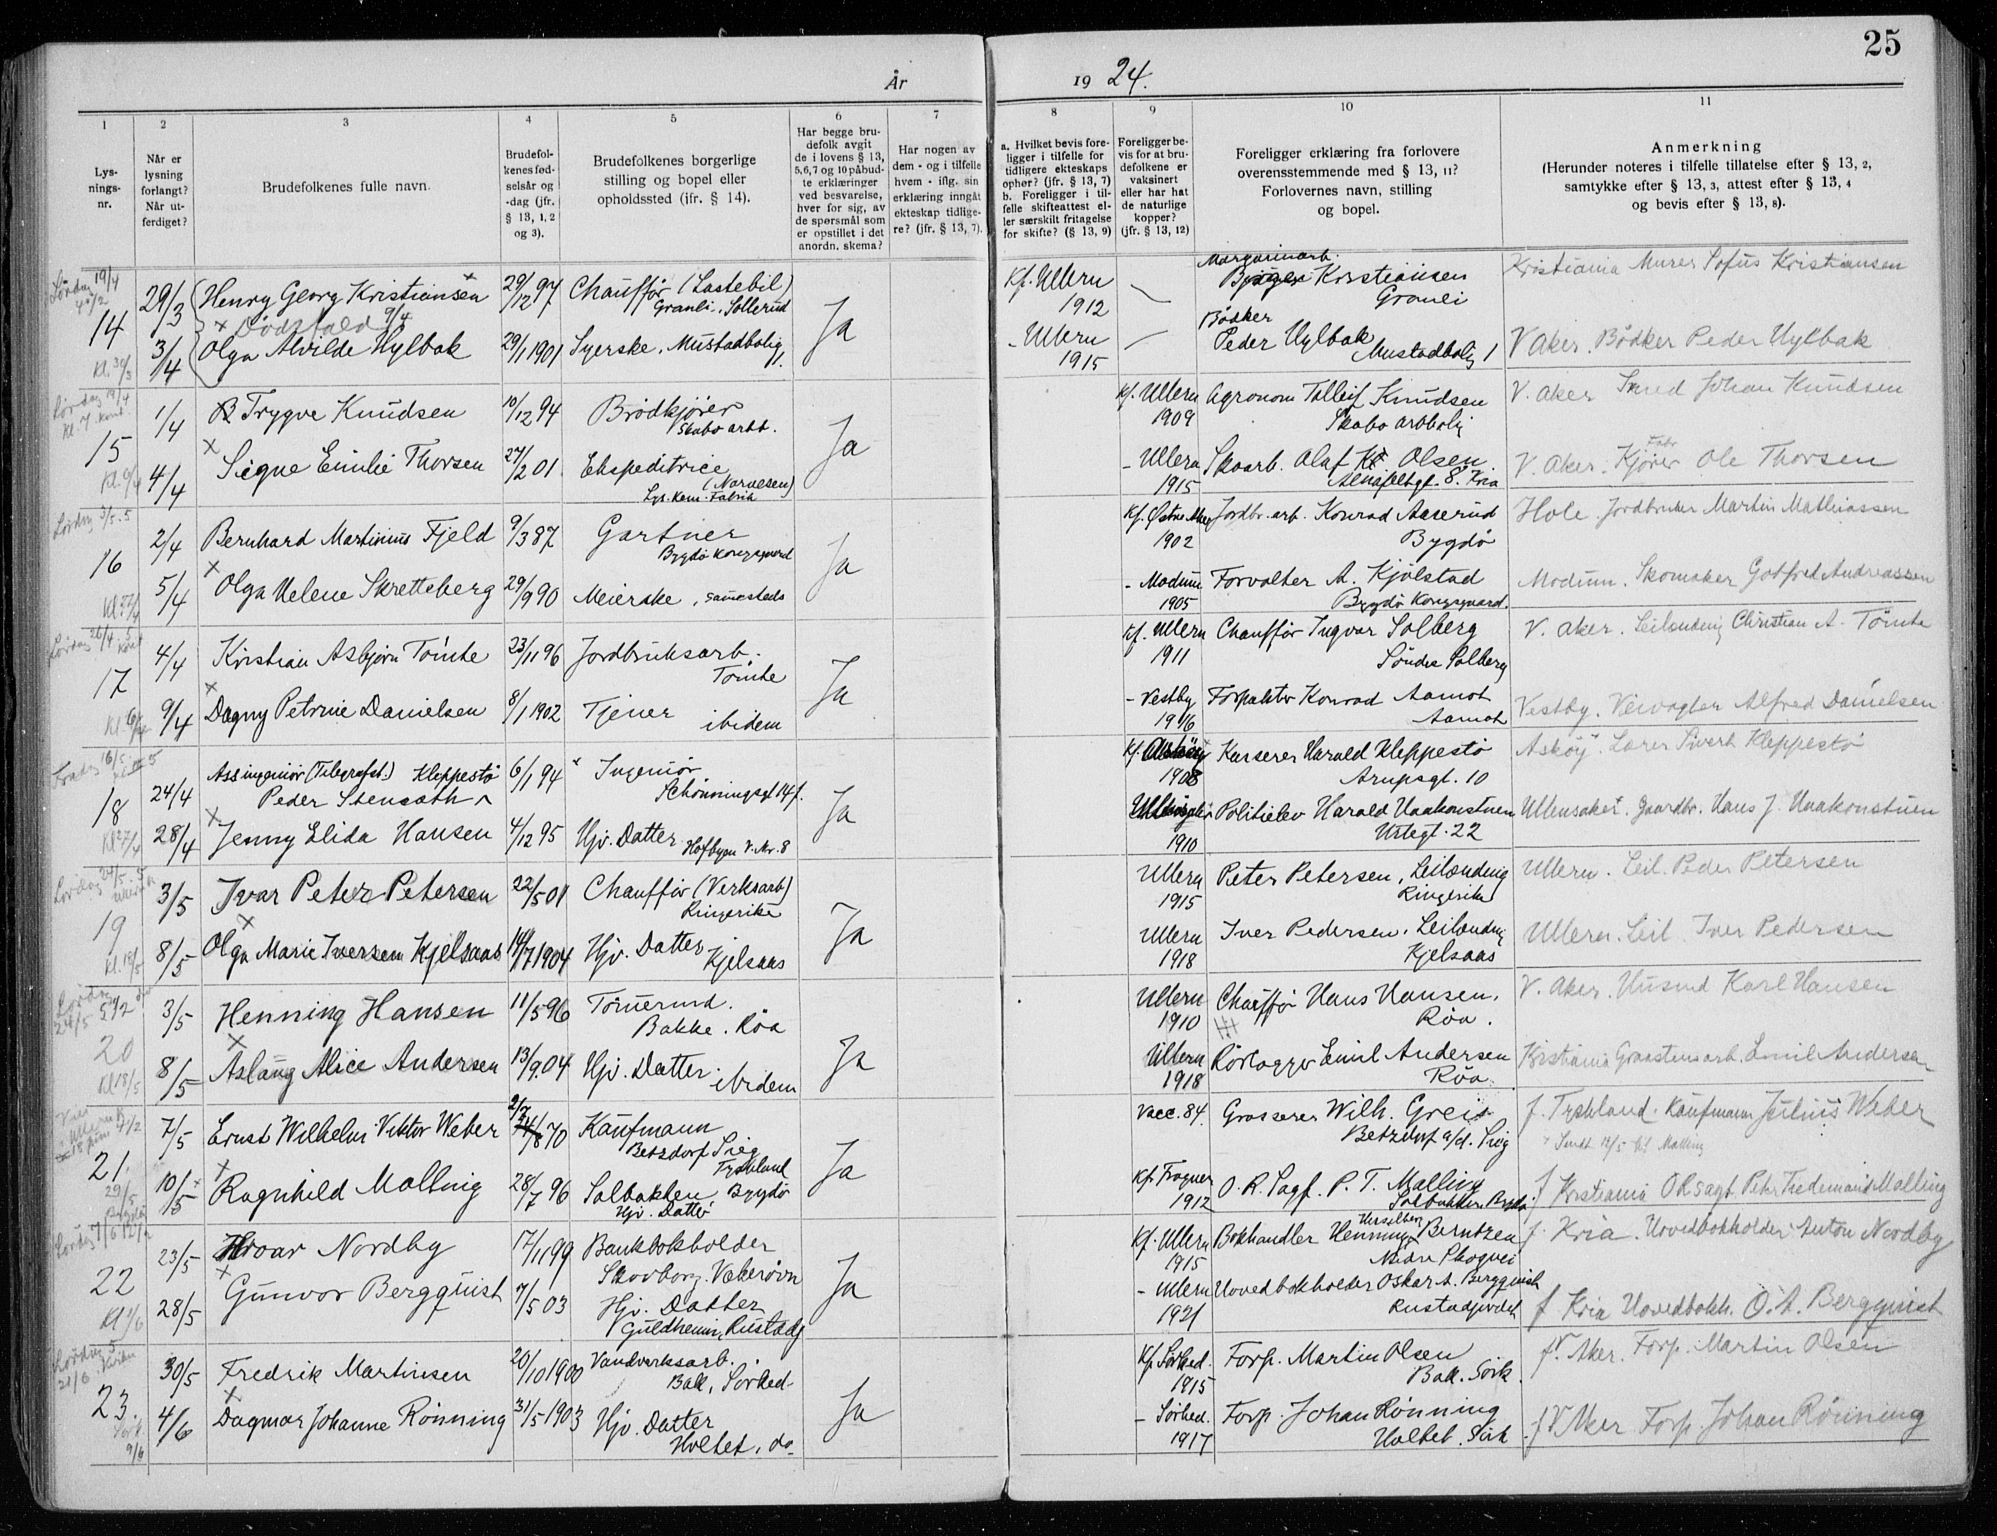 25
År 1924.
1 2 3 4 5 6 7 8 9 10 11
Lysningsnr.
Når er lysning forlangt? Når utferdiget?
Brudefolkenes fulle navn.
Brudefolkenes fødselsår og -dag (jfr. § 13, 1, 2 og 3).
Brudefolkenes borgerlige stilling og bopel eller opholdssted (jfr. § 14).
Har begge brudefolk avgit de i lovens § 13, 5, 6, 7 og 10 påbudte erklæringer ved besvarelse, hver for sig, av de spørsmål som er opstillet i det anordn. skema?
Har nogen av dem - og i tilfelle hvem - iflg. sin erklæring inngåt ekteskap tidligere? (jfr. § 13, 7).
a. Hvilket bevis foreligger i tilfelle for tidligere ekteskaps ophør? (jfr. § 13, 7) b. Foreligger i tilfelle skifteattest eller særskilt fritagelse for skifte? (§ 13, 9)
Foreligger bevis for at brudefolkene er vaksinert eller har hat de naturlige kopper? (jfr. § 13, 12)
Foreligger erklæring fra forlovere overensstemmende med § 13, 11? Forlovernes navn, stilling og bopel.
Anmerkning (Herunder noteres i tilfelle tillatelse efter § 13, 2, samtykke efter § 13, 3, attest efter § 13, 4 og bevis efter § 13, 8).
Lørdag 19/4
14 29/3 Henry Georg Kristiansen 29/12 97 Chauffør (Lastebil) Granli. Sollerud Ja Kf. Ullern 1912 Margarinarb. Kristiansen Granli Kristiania Murer Sofus Kristiansen
x Dødsfald 9/4
3/4 Olga Alvilde Hylbak 29/1 1901 Syerske. Mustadbolig 1. - Ullern 1915 Bødker Peder Hylbak Mustadbolig 1 V Aker. Bødker Peder Hylbak
Kl. 30/3
Lørdag 19/4 Kl. 7
15 1/4 Trygve Knudsen 10/12 94 Brødkjører Skabo arbb. Ja Kf. Ullern 1909 Agronom Tolleif Knudsen Skabo arbbolig V. Aker Smed Johan Knudsen
4/4 x Signe Emilie Thorsen 27/2 01 Ekspeditrice (Narvesen) Lys. Kem. Fabrik - Ullern 1915 Skoarb. Olaf Olsen Alnafeltgt. 8. Kria V. Aker. Kjører Ole Thorsen
Lørdag 3/5. 5
16 2/4 Bernhard Martinius Fjeld 9/3 87 Gartner Bygdø Kongsgaard Ja Kf. Østre Aker 1902 Jordbr. arb. Konrad Aaserud Bygdø Hole. Jordbruker Martin Mathiassen
5/4 x Olga Helene Skretteberg 29/9 90 Meierske, samesteds - Modum 1905 Forvalter A. Kjølstad Bygdø Kongsgaard. Modum. Skomaker Gotfred Andreassen
Lørdag 26/4. 5
17 4/4 Kristian Asbjørn Tømte 23/11 96 Jordbruksarb. Tømte Ja Kf. Ullern 1911 Chauffør Ingvar Solberg Søndre Solberg V. Aker. Leilænding Christian A. Tømte
9/4 x Dagny Petrine Danielsen 8/1 1902 Tjener ibidem - Vestby 1916 Forpakter Konrad Aamot Aamot Vestby. Veivogter Alfred Danielsen
Fredag 16/5
18 24/4 Ass ingeniør (Telegrafst.) Peder Stensøth Kleppestø 6/1 94 Ingeniør Schønningsgt 14 f. Ja Kf. Askøy 1908 Kasserer Harald Kleppestø Arupsgt. 10 Askøy. Lærer Sivert Kleppestø
28/4 x Jenny Elida Hansen 4/12 95 Hjv. Datter Hofbyen V. Nr. 8 Ullensaker 1910 Politielev Harald Haakonstuen Urtegt. 22 Ullensaker. Gaardbr. Hans J. Haakonstuen
Lørdag 24/5. 5
19 3/5 Ivar Peter Petersen 22/5 01 Chauffør (Verksarb) Ringerike Ja Ullern 1915 Peter Petersen, Leilænding Ringerike Ullern. Leil. Peder Petersen
Kl. 18/5 8/5 x Olga Marie Iversen Kjelsaas 14/7 1904 Hjv. Datter Kjelsaas Ullern 1918 Iver Pedersen. Leilænding Kjelsaas Ullern. Leil Iver Pedersen
Lørdag 24/5
20 3/5 Henning Hansen 11/5 96 Tømmermd. Bakke. Røa Ja Ullern 1910 Chauffør Hans Hansen. Røa. V. Aker. Husmd Karl Hansen
Kl 18/5 8/5 x Aslaug Alice Andersen 13/9. 04 Hjv. Datter. ibidem Ullern 1918 Rørlægger Emil Andersen Røa. Kristiania Graastensarb. Emil Andersen
21. 7/5 Ernst Wilhelm Viktor Weber 2/7 70 Kaufmann Betzdorf Sieg Tyskland Ja Vacc. 84. Grosserer Wilh. Greis Betzdorf a/d. Sieg f. Tyskland. Kaufmann Julius Weber
10/5 x Ragnhild Malling 28/7 96 Solbakken, Bygdø Hjv. Datter Kf. Frogner 1912 O. R. Sagf. P. T. Malling Solbakken. Bygdø f Kristiania ORsagf. Peter Fredemann Malling
22 23/5 Hroar Nordby 17/11 99 Bankbokholder Skovborg. Vækerøvn Ja Kf. Ullern 1915 Bokhandler Henning Hesselberg Berntzen Nedre Skogvei f. Kria. Hovedbokholder Anton Nordby
Kl 1/6 28/5 x Gunvor Bergquist 7/5 03 Hjv. Datter Guldheim, Rustadg - Ullern 1921 Hovedbokholder Oskar A. Bergquist Rustadjordet f Kria Hovedbokh. O. A. Bergquist
Lørdag 5 21/6
23. 30/5 Fredrik Martinsen 20/10 1900 Vandverksarb. Bak, Sørked. Ja Kf Sørked. 1915 Forp. Martin Olsen Bak. Sørk. f V. Aker. Forp. Martin Olsen
9/6 4/6 x Dagmar Johanne Rønning 31/5 1903 Hjv. Datter Holtet, do. - Sørked. 1917 Forp. Johan Rønning Holtet. Sørk f V Aker Forp. Johan Rønning